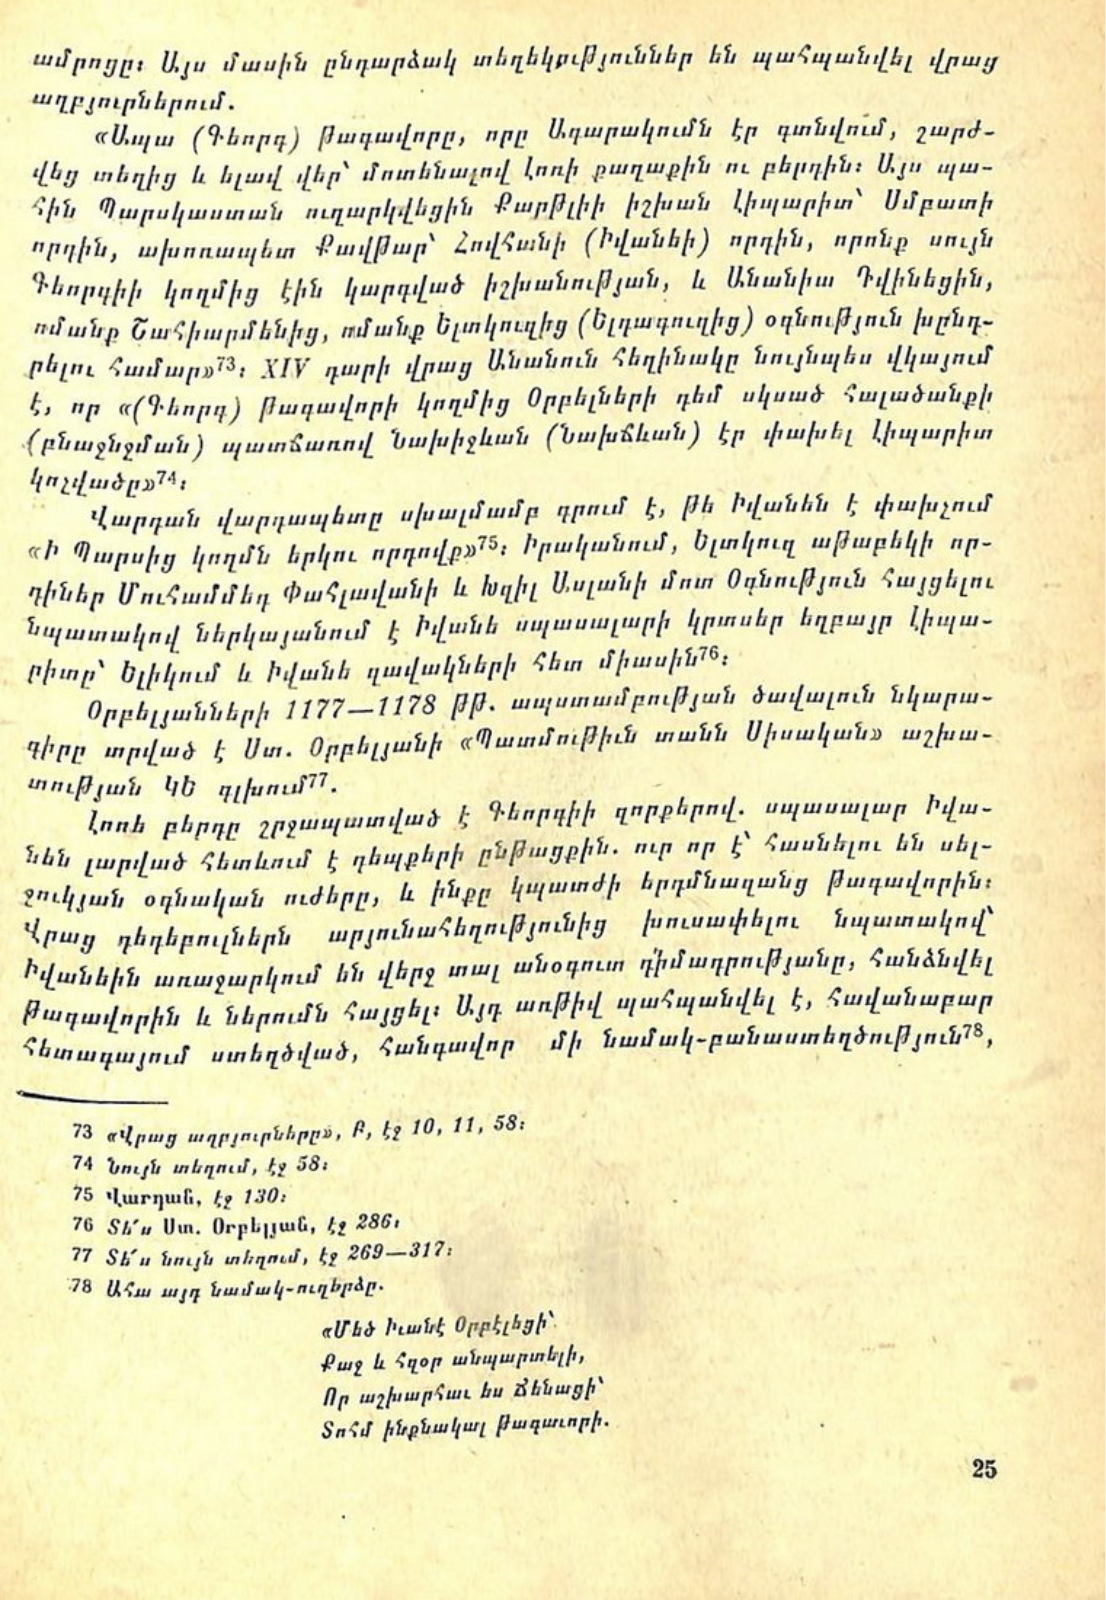 ամրոցը։ Այս մասին ընդարձակ տեղեկություններ են պահպանվել վրաց
աղբյուրներում.
«Ապա (Գեորգ) թագավորը, որը Ագարակումն էր գտնվում, շարժ-
վեց տեղից և ելավ վեր՝ մոտենալով Լոռի քաղաքին ու բերդին։ Այս պա-
հին Պարսկաստան ուղարկվեցին Քարթլիի իշխան Լիպարիտ՝ Սմբատի
որդին, ախոռապետ Քավթար՝ Հովհանի (Իվանեի) որդին, որոնք սույն
Գեորգիի կողմից էին կարգված իշխանության, և Անանիա Դվինեցին,
ոմանք Շահիարմենից, ոմանք Ելտկուզից (Ելդագուզից) օգնություն խընդ-
րելու համար»73։ XIV դարի վրաց Անանուն հեղինակը նույնպես վկայում
է, որ «(Գեորգ) թագավորի կողմից Օրբելների դեմ սկսած հալածանքի
(բնաջնջման) պատճառով Նախիջևան (Նախճևան) էր փախել Լիպարիտ
կոչվածը»74։
Վարդան վարդապետը սխալմամբ գրում է, թե Իվանեն է փախչում
«Ի Պարսից կողմն երկու որդովք»75։ Իրականում, Ելտկուզ աթաբեկի որ-
դիներ Մուհամմեդ Փահլավանի և Խզիլ Ասլանի մոտ Օգնություն հայցելու
նպատակով ներկայանում է Իվանե սպասալարի կրտսեր եղբայր Լիպա-
րիտը՝ Ելիկում և Իվանե զավակների հետ միասին76։
Օրբելյանների 1177—1178 թթ. ապստամբության ծավալուն նկարա-
գիրը տրված է Ստ. Օրբելյանի «Պատմութիւն տանն Սիսական» աշխա-
տության ԿԵ գլխում77.
Լոռե բերդը շրջապատված է Գեորգիի զորքերով. սպասալար Իվա-
նեն լարված հետևում է դեպքերի ընթացքին. ուր որ է՝ հասնելու են սել-
ջուկյան օգնական ուժերը, և ինքը կպատժի երդմնազանց թագավորին։
Վրաց դեդեբուլներն արյունահեղությունից խուսափելու նպատակով՝
Իվանեին առաջարկում են վերջ տալ անօգուտ դիմադրությանը, հանձնվել
թագավորին և ներումն հայցել։ Այդ առթիվ պահպանվել է, հավանաբար
հետագայում ստեղծված, հանգավոր մի նամակ-բանաստեղծություն78,
73 «Վրաց աղբյուրները», Բ, էջ 10, 11, 58։
74 Նույն տեղում, էջ 58։
75 Վարդան, էջ 130։
76 Տե՛ս Ստ. Օրբելյան, էջ 286։
77 Տե՛ս նույն տեղում, էջ 269—317։
78 Ահա այդ նամակ-ուղերձը.
«Մեծ Իւանէ Օրբէլեցի՝
Քաջ և հզօր անպարտելի,
Որ աշխարհաւ ես Ճենացի՝
Տոհմ ինքնակալ թագաւորի.
25